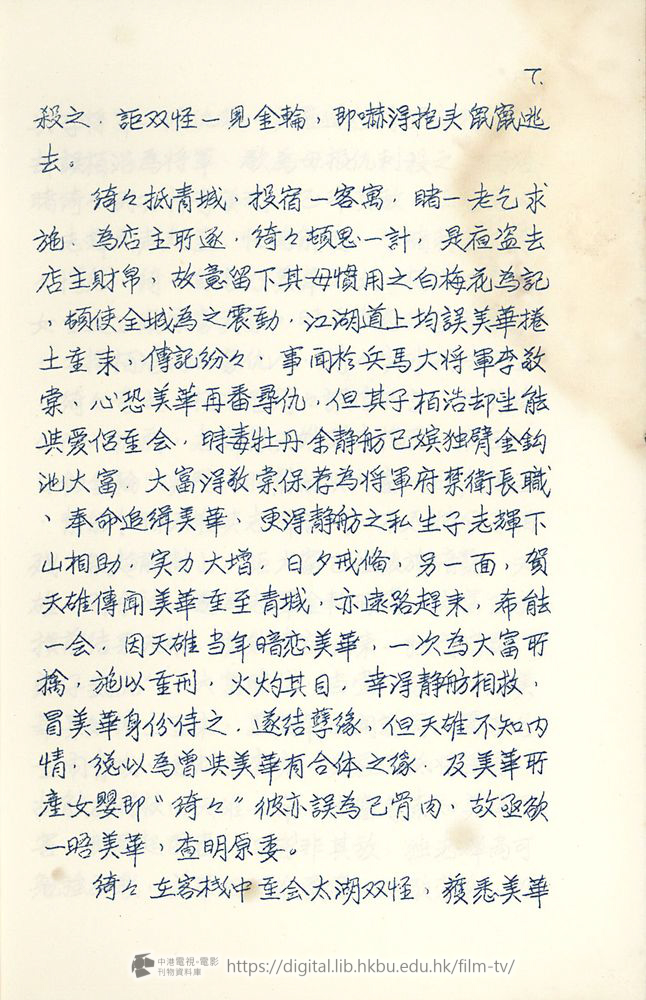 7.
殺之．詎双怪一見金輪，即嚇得抱头鼠竄逃
去。
綺々抵青城，投宿一客寓，睹一老乞求
施．為店主所逐，綺々頓思一計，是夜盜去
店主財帛，故意留下其母慣用之白梅花為記
，頓使全城為之震動．江湖道上均誤美華捲
土重来，傳記紛々，事聞於兵馬大將軍李敬
棠，心恐美華再番尋仇，但其子栢浩却望能
與爱侣重会，時毒牡丹余静舫已嫔独臂金鈎
池大富．大富得敬棠保荐為將軍府禁衛長職
，奉命追緝美華．更得静舫之私生子志輝下
山相助．実力大增．日夕戒俻，另一面，賀
天雄傳聞美華重至青城，亦遠路趕来，希能
一会．因天雄当年暗恋美華，一次為大富所
擒，施以重刑，火灼其目．幸得静舫相救，
冒美華身份侍之．遂结孽缘，但天雄不知内
情，總以為曾與美華有合体之缘．及美華所
産女嬰即〝綺々〞彼亦誤為己骨肉，故亟欲
一晤美華，查明原委。
綺々在客栈中重会太湖双怪，獲悉美華
中港電視·電影
刊物資料庫
https://digital.lib.hkbu.edu.hk/film-tv/